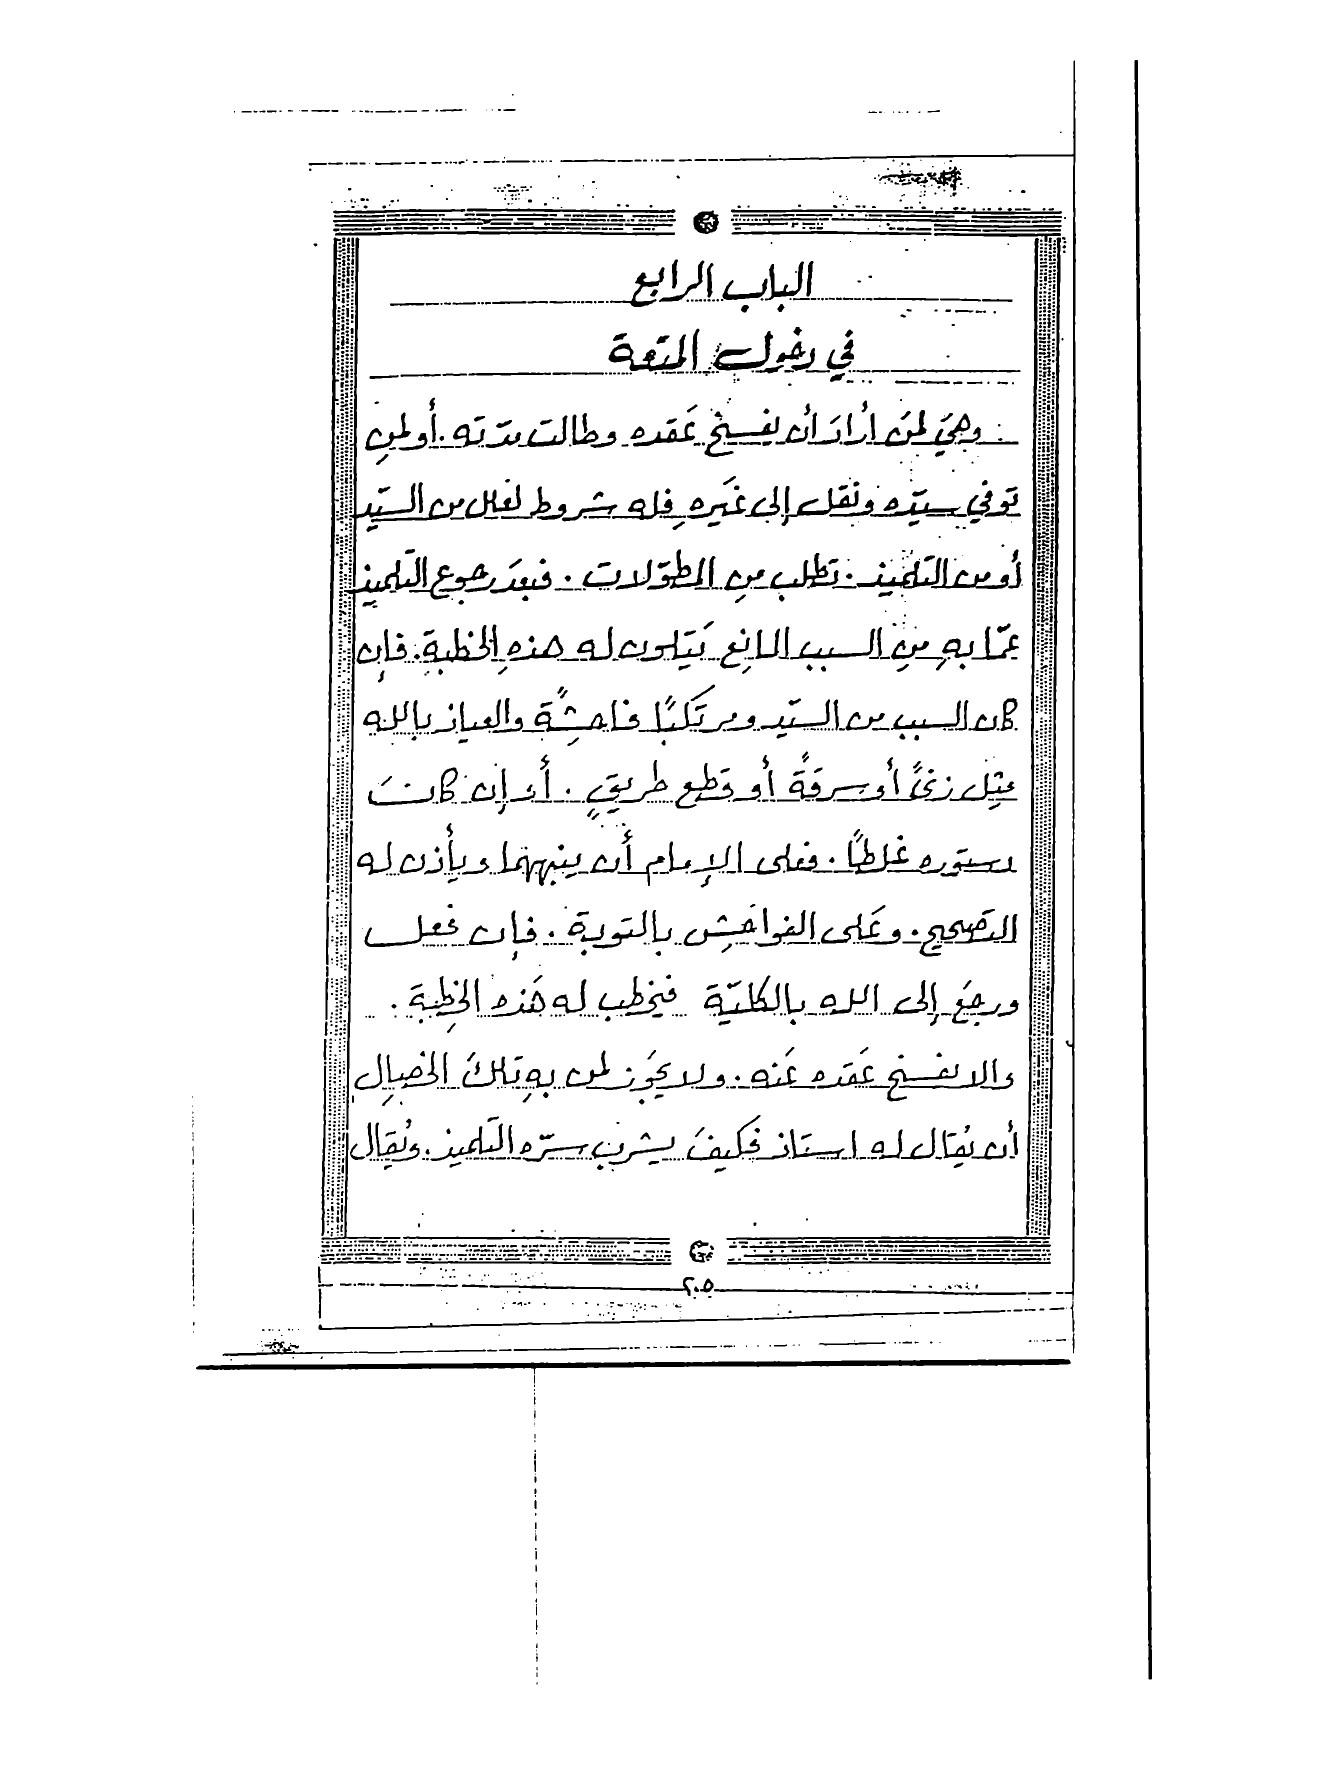 الباب الرابع
في دخول المتعة
وهيَ لمنَ أرادَ أن يفسخ عَقده وطالت مدّته. أو لمنِ
توفي سيّده ونقل إلى غَيره فله شروط لعلل من السيّد
أو من التلميذ. تطلب منِ المطوّلات. فبعدَ رجوع التلميذ
عمّا بهِ منِ السبب المانع يَتلون له هذهِ الخطبة. فإن
كان السبب من السيّد ومرتَكبًا فاحشِةً والعياذ بالله
مثل زنىً أو سرقةً أو قَطع طريقٍ. أو إن كانَ
دستوره غلطًا. فعلى الإمام أن ينبههما ويأذن له
التَصحيح. وعَلى الفواحَشِ بالتوبة. فإن فعل
ورجعَ إلى الله بالكليّة فيخطب له هَذه الخطِبة.
والا يفسخ عَقده عَنه. ولا يجَوز لمن بهِ تلكَ الخصِال
أن يُقال له استاذ فكيفَ يشرب سرّه التَلميذ. ويُقال
٢٠٥